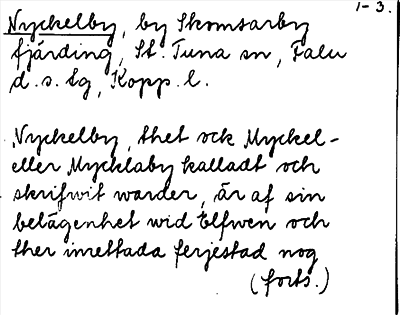 1-3.
Nyckelby, by Skomsarby
fjärding, St. Tuna sn, Falu
d. s. tg, Kopp. l.
Nyckelby, thet ock Myckel-
eller Mycklaby kalladt och
skrifwit warder, är af sin
belägenhet wid Elfwen och
ther inrettada ferjestad nog
(forts.)